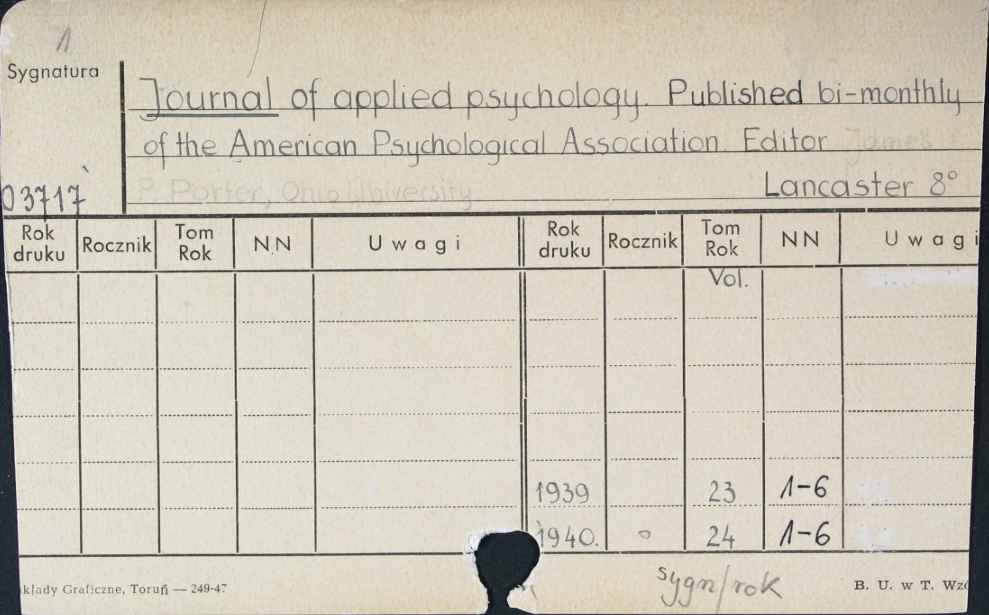 1
Sygnatura
Journal of applied psychology. Published bi-monthly
of the American Psychological Association Editor James
P. Porter, Ohio University
Lancaster 8°
03717
Rok druku Rocznik Tom Rok NN Uwagi Rok druku Rocznik Tom Rok NN Uwagi
Vol.
1939 23 1-6
1940. 24 1-6
sygn/rok
kłady Graficzne, Toruń — 249-47
B. U. w T. Wzó